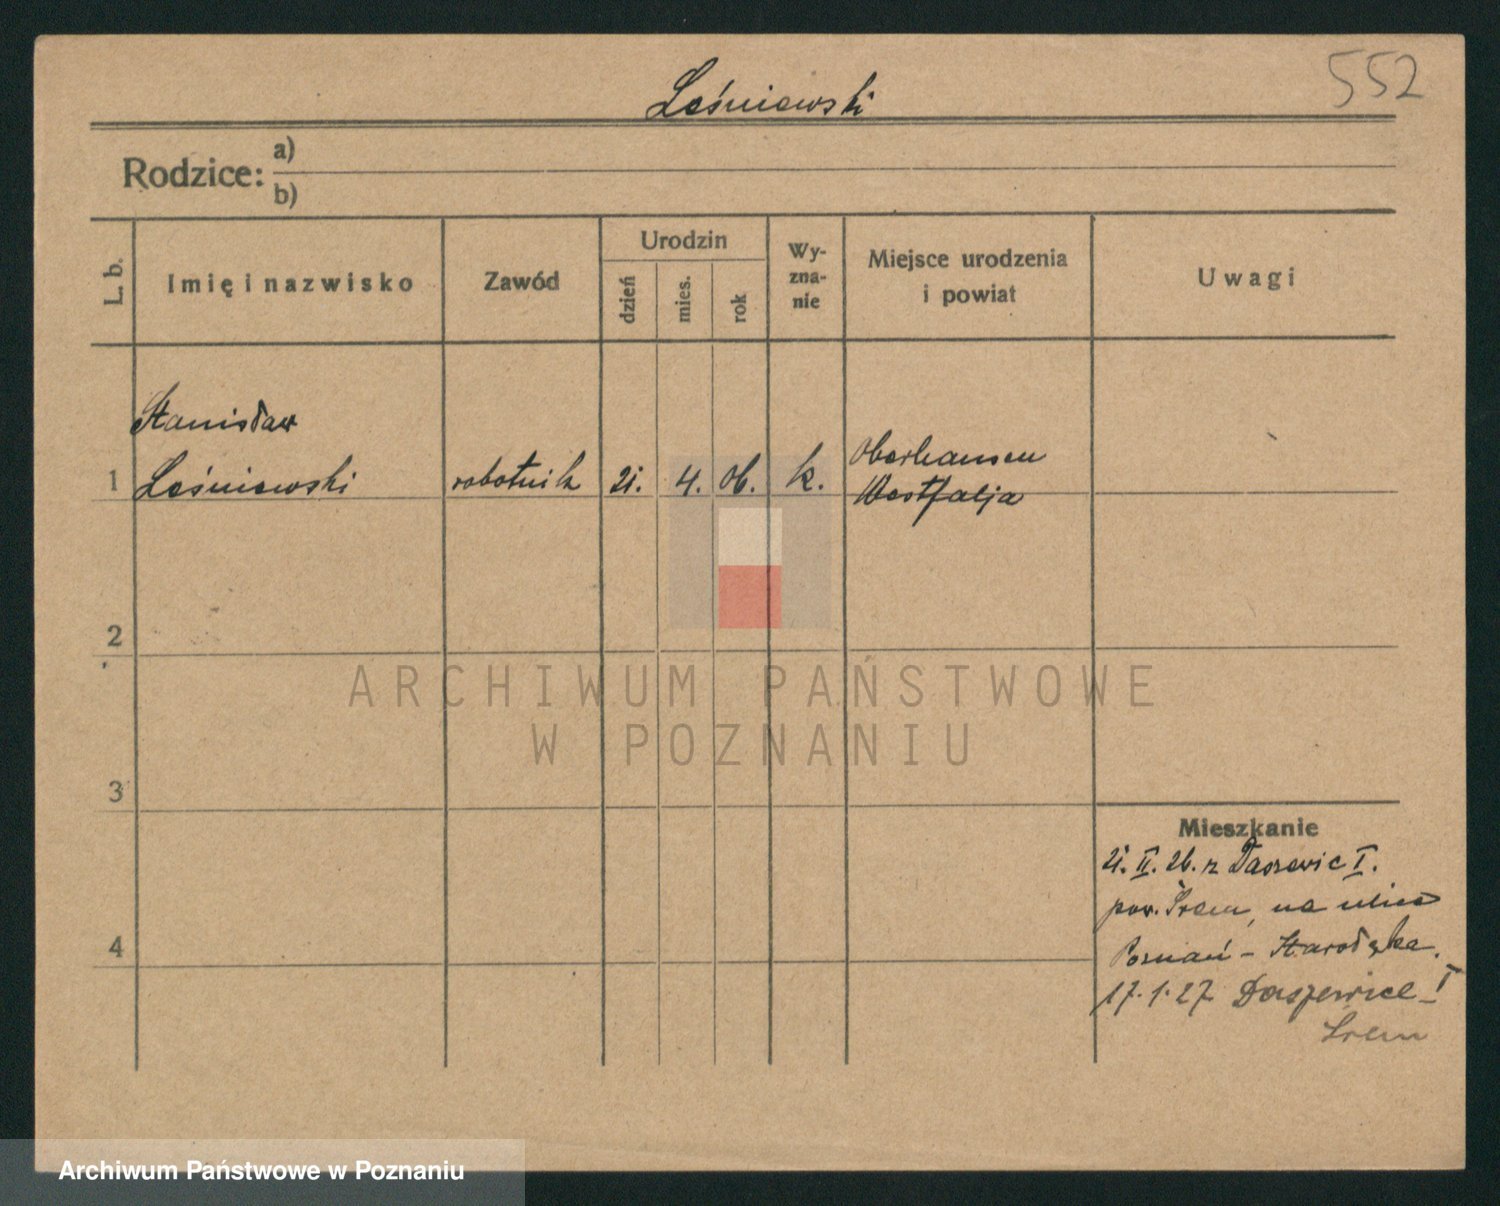 552
Leśniewski
Rodzice: a)
b)
L. b.
Imię i nazwisko
Zawód
Urodzin
dzień
mies.
rok
Wy-
zna-
nie
Miejsce urodzenia
i powiat
Uwagi
Stanisław
1 Leśniewski robotnik 21. 4. 06. k. Oberhausen
Westfalja
2
3
4
Mieszkanie
21. II. 26. z Daszewic I.
pow. Śrem, na ulica
Poznań - Starołęka.
17.1.27 Daszewice - I
Śrem
ARCHIWUM PAŃSTWOWE
W POZNANIU
Archiwum Państwowe w Poznaniu